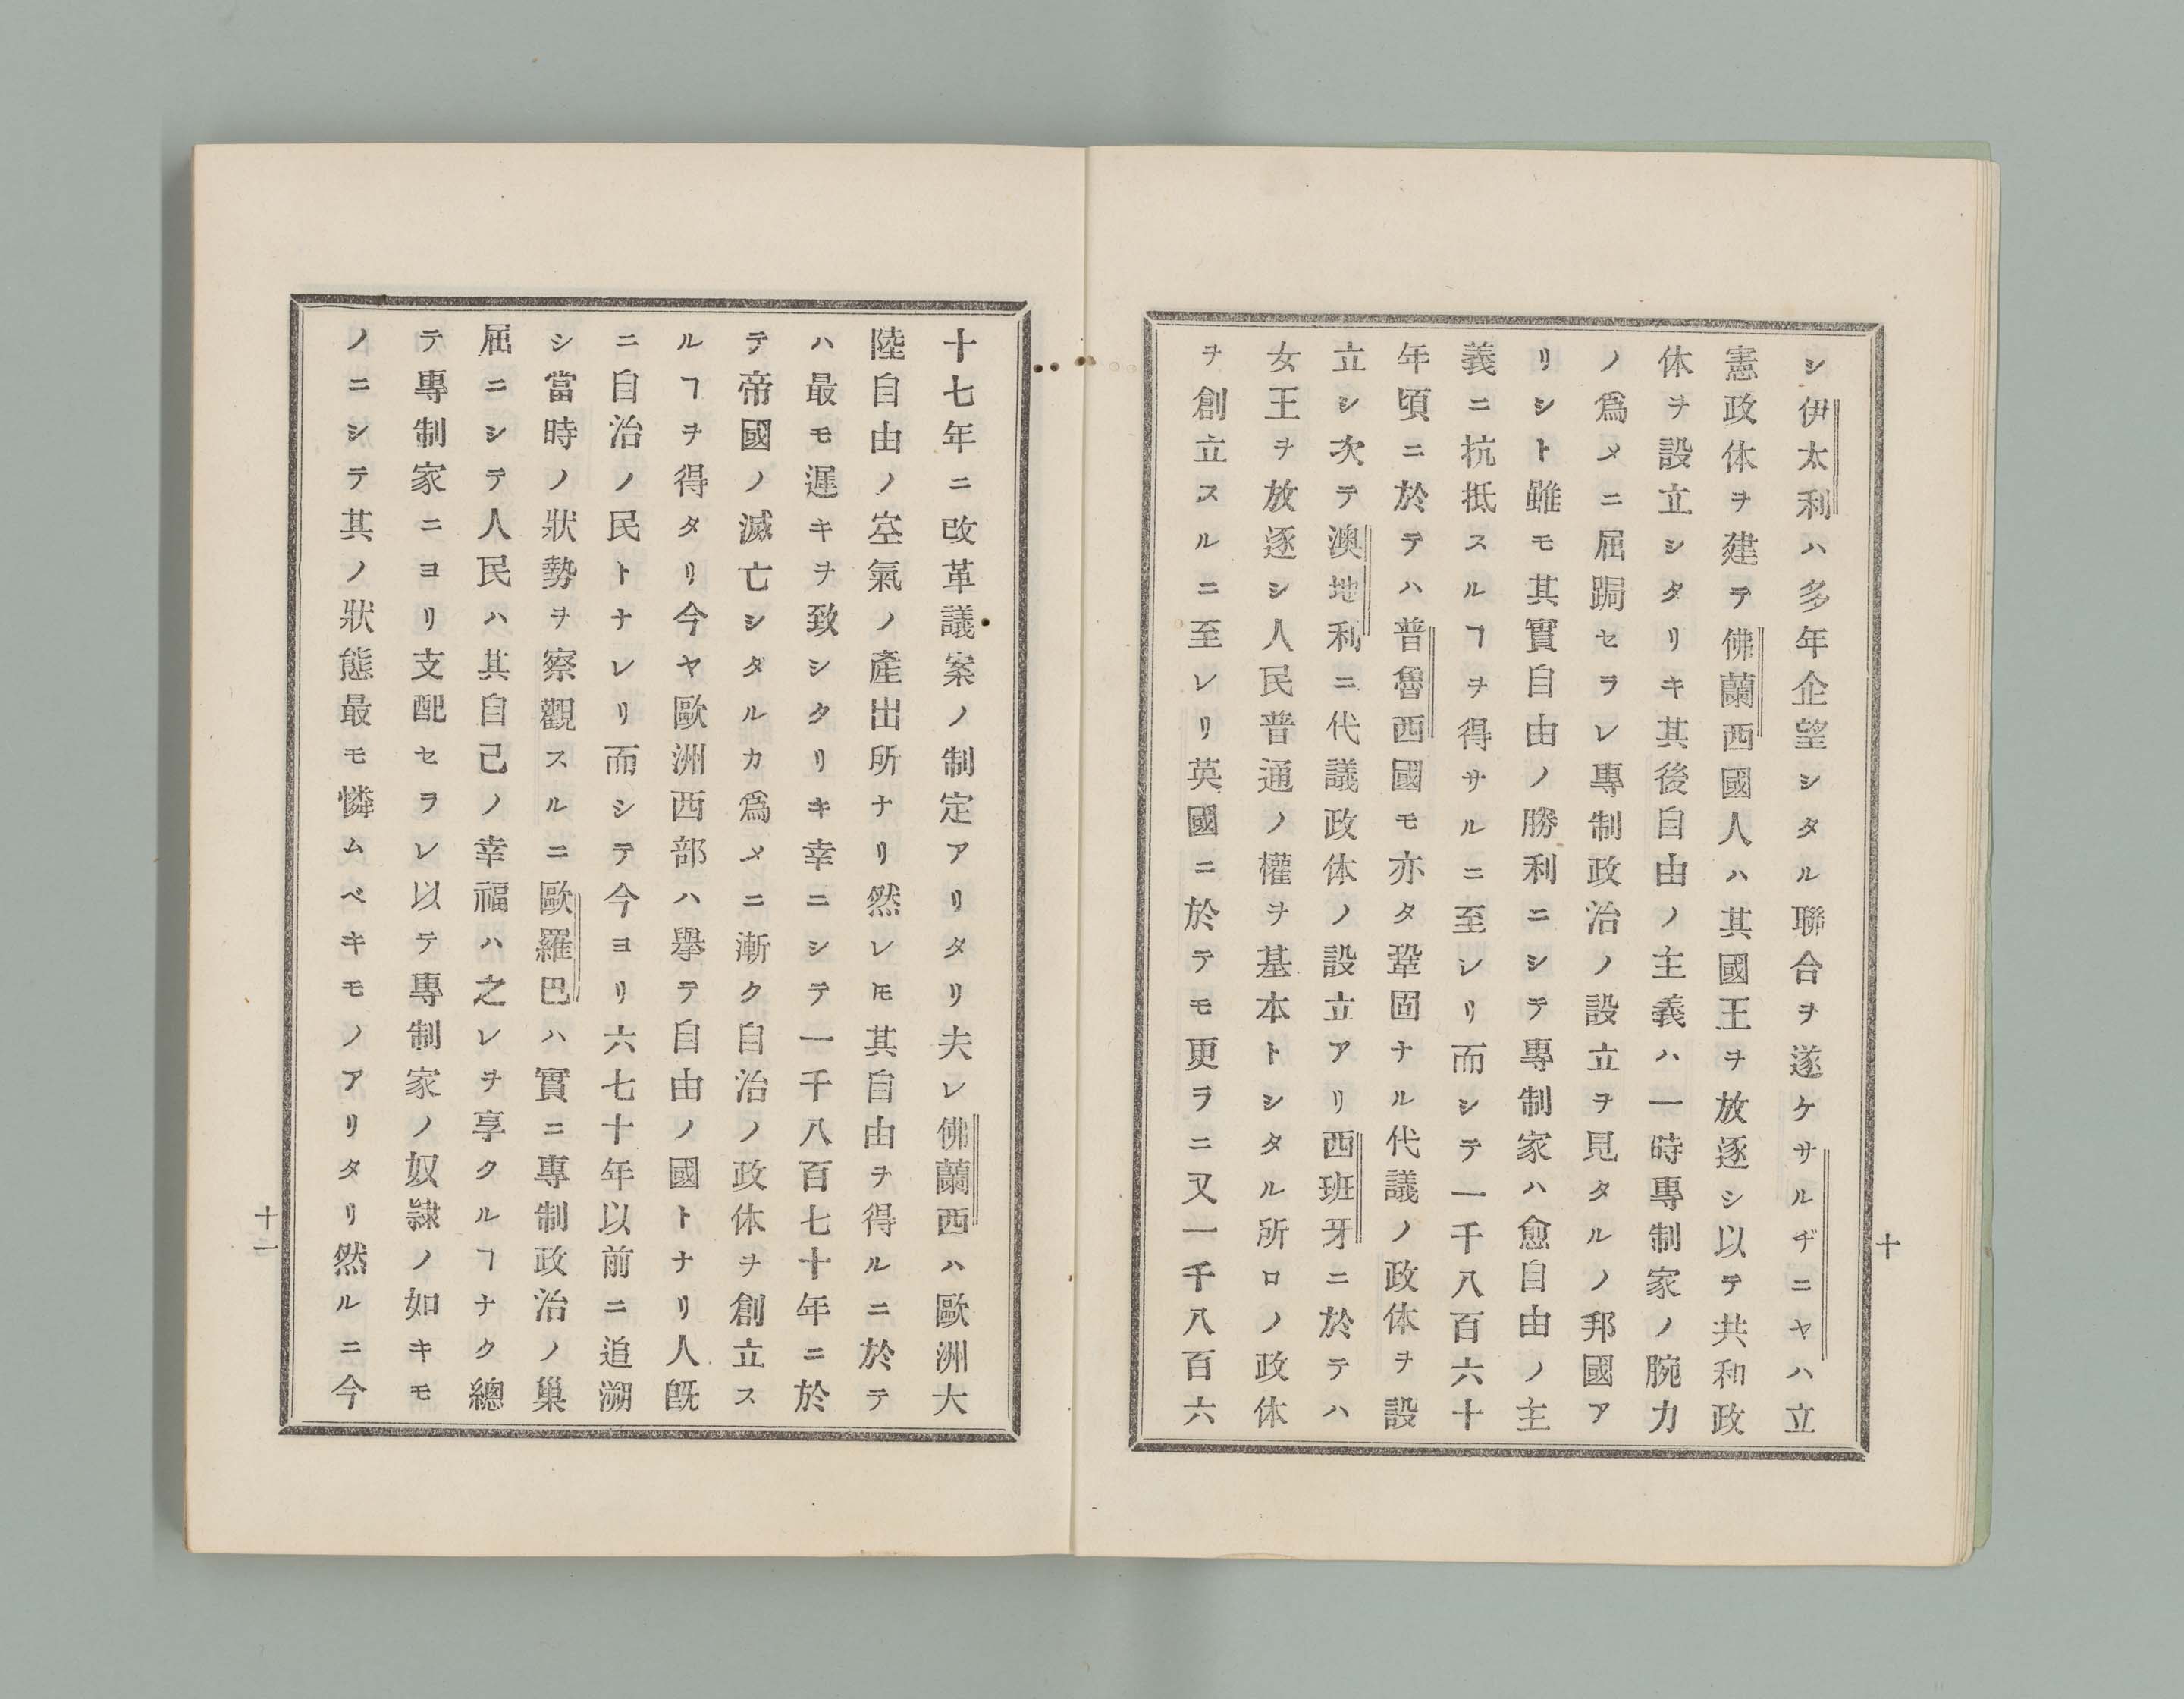 シ伊太利ハ多年企望シタル聯合ヲ遂ケサルヂニヤハ立
憲政体ヲ建テ佛蘭西國人ハ其國王ヲ放逐シ以テ共和政
体ヲ設立シタリキ其後自由ノ主義ハ一時專制家ノ腕力
ノ爲メニ屈跼セラレ專制政治ノ設立ヲ見タルノ邦國ア
リシト雖モ其實自由ノ勝利ニシテ專制家ハ愈自由ノ主
義ニ抗抵スルヿヲ得サルニ至レリ而シテ一千八百六十
年頃ニ於テハ普魯西國モ亦タ鞏固ナル代議ノ政体ヲ設
立シ次テ澳地利ニ代議政体ノ設立アリ西班牙ニ於テハ
女王ヲ放逐シ人民普通ノ權ヲ基本トシタル所ロノ政体
ヲ創立スルニ至レリ英國ニ於テモ更ラニ又一千八百六
十
十七年ニ改革議案ノ制定アリタリ夫レ佛蘭西ハ歐洲大
陸自由ノ空氣ノ產出所ナリ然レ𪜈其自由ヲ得ルニ於テ
ハ最モ遲キヲ致シタリキ幸ニシテ一千八百七十年ニ於
テ帝國ノ滅亡シタルカ爲メニ漸ク自治ノ政体ヲ創立ス
ルヿヲ得タリ今ヤ歐洲西部ハ擧テ自由ノ國トナリ人旣
ニ自治ノ民トナレリ而シテ今ヨリ六七十年以前ニ追溯
シ當時ノ狀勢ヲ察觀スルニ歐羅巴ハ實ニ專制政治ノ巢
屈ニシテ人民ハ其自己ノ幸福ハ之レヲ享クルヿナク總
テ專制家ニヨリ支配セラレ以テ專制家ノ奴隷ノ如キモ
ノニシテ其ノ狀態最モ憐ムベキモノアリタリ然ルニ今
十一